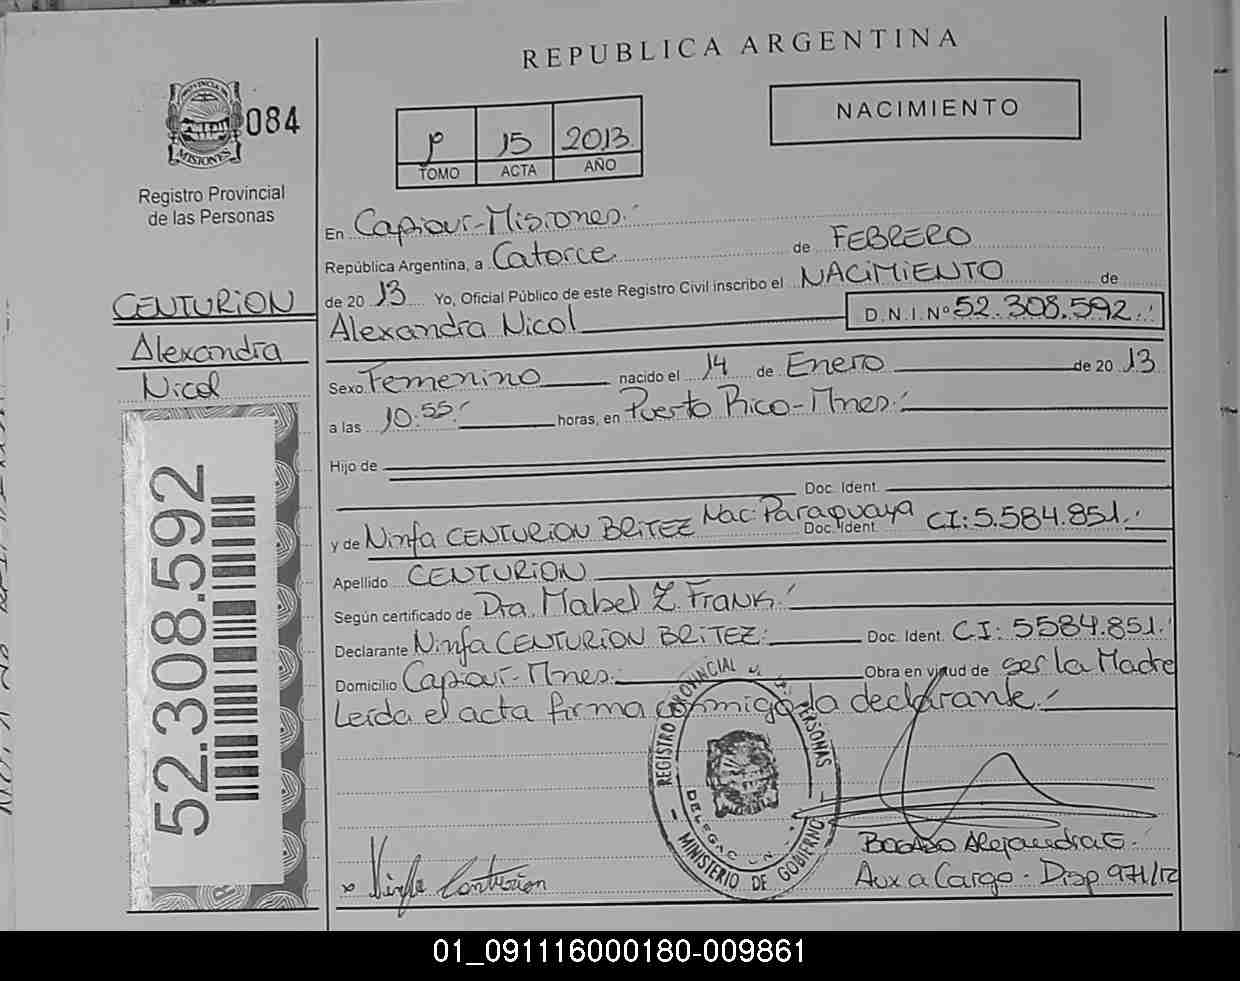 REPUBLICA ARGENTINA
NACIMIENTO
PROVINCIA DE MISIONES
084
Registro Provincial
de las Personas
1º 15 2013
TOMO ACTA AÑO
En Capiovi-Misiones.
República Argentina, a Catorce de FEBRERO
de 2013 Yo, Oficial Público de este Registro Civil inscribo el NACIMIENTO de
Alexandra Nicol D.N.I. Nº 52.308.592.
CENTURION
Alexandra
Nicol
52.308.592
Sexo Femenino nacido el 14 de Enero de 2013
a las 10.55. horas, en Puerto Rico-Mnes.
Hijo de
Doc. Ident.
y de Ninfa CENTURION BRITEZ Nac: Paraguaya Doc. Ident. CI: 5.584.851.
Apellido CENTURION
Según certificado de Dra. Mabel Z. Frank.
Declarante Ninfa CENTURION BRITEZ. Doc. Ident. CI: 5584.851.
Domicilio Capiovi-Mnes. Obra en virtud de ser la Madre
Leída el acta firma conmigo la declarante.
REGISTRO PROVINCIAL DE LAS PERSONAS
MINISTERIO DE GOBIERNO
Ninfa Centurion
BOGADO Alejandra G.
Aux a Cargo - Disp 971/12
01_091116000180-009861